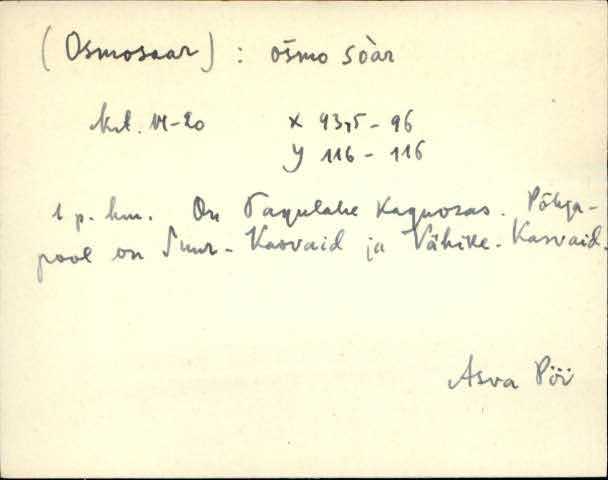 (Osmosaar) : òšmo sòar
krt. VI-20 x 93,5 - 96
y 116 - 116
1 p. km. On Vagulahe Kaguosas. Põhja-
pool on Suur-Kasvaid ja Vähike-Kasvaid.
Asva Pöi